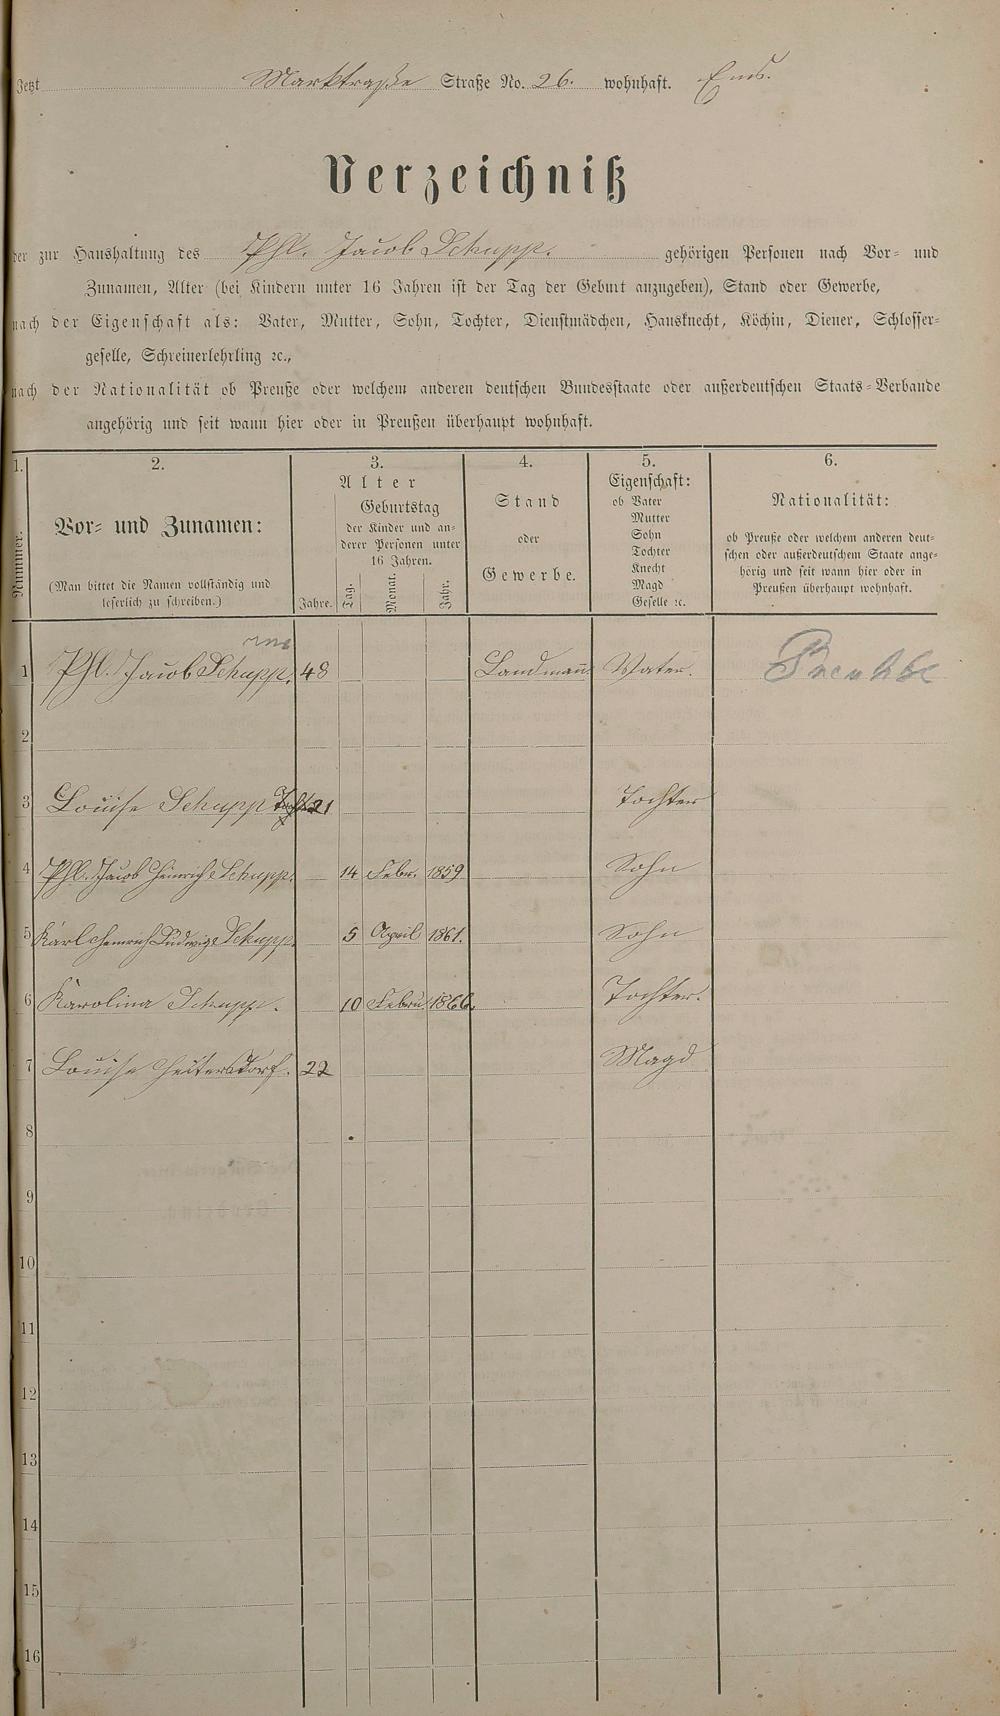 Jetzt Marktraße Straße No. 26. wohnhaft. Ems.
Verzeichniß
der zur Haushaltung des Phl. Jacob Schupp. gehörigen Personen nach Vor- und
Zunamen, Alter (bei Kindern unter 16 Jahren ist der Tag der Geburt anzugeben), Stand oder Gewerbe,
nach der Eigenschaft als: Vater, Mutter, Sohn, Tochter, Dienstmädchen, Hausknecht, Köchin, Diener, Schlosser-
geselle, Schreinerlehrling ꝛc.,
nach der Nationalität ob Preuße oder welchem anderen deutschen Bundesstaate oder außerdeutschen Staats-Verbande
angehörig und seit wann hier oder in Preußen überhaupt wohnhaft.
1. 2. 3. 4. 5. 6.
Nummer.
Vor- und Zunamen:
(Man bittet die Namen vollständig und
leserlich zu schreiben.)
Alter
Jahre.
Geburtstag
der Kinder und an-
derer Personen unter
16 Jahren.
Tag. Monat. Jahr.
Stand
oder
Gewerbe.
Eigenschaft:
ob Vater
Mutter
Sohn
Tochter
Knecht
Magd
Geselle ꝛc.
Nationalität:
ob Preuße oder welchem anderen deut-
schen oder außerdeutschem Staate ange-
hörig und seit wann hier oder in
Preußen überhaupt wohnhaft.
1 Phl. Jacob Schupp. 48 Landmann Vater. Preuhße
2
3 Louise Schupp 21 Tochter
4 Phl. Jacob Heinrich Schupp. 14 Febr. 1859 Sohn
5 Karl Heinrich Ludwig Schupp. 5 April 1861. Sohn
6 Karolina Schupp. 10 Febru. 1866. Tochter.
7 Louise Heitersdorf. 22 Magd
8
9
10
11
12
13
14
15
16